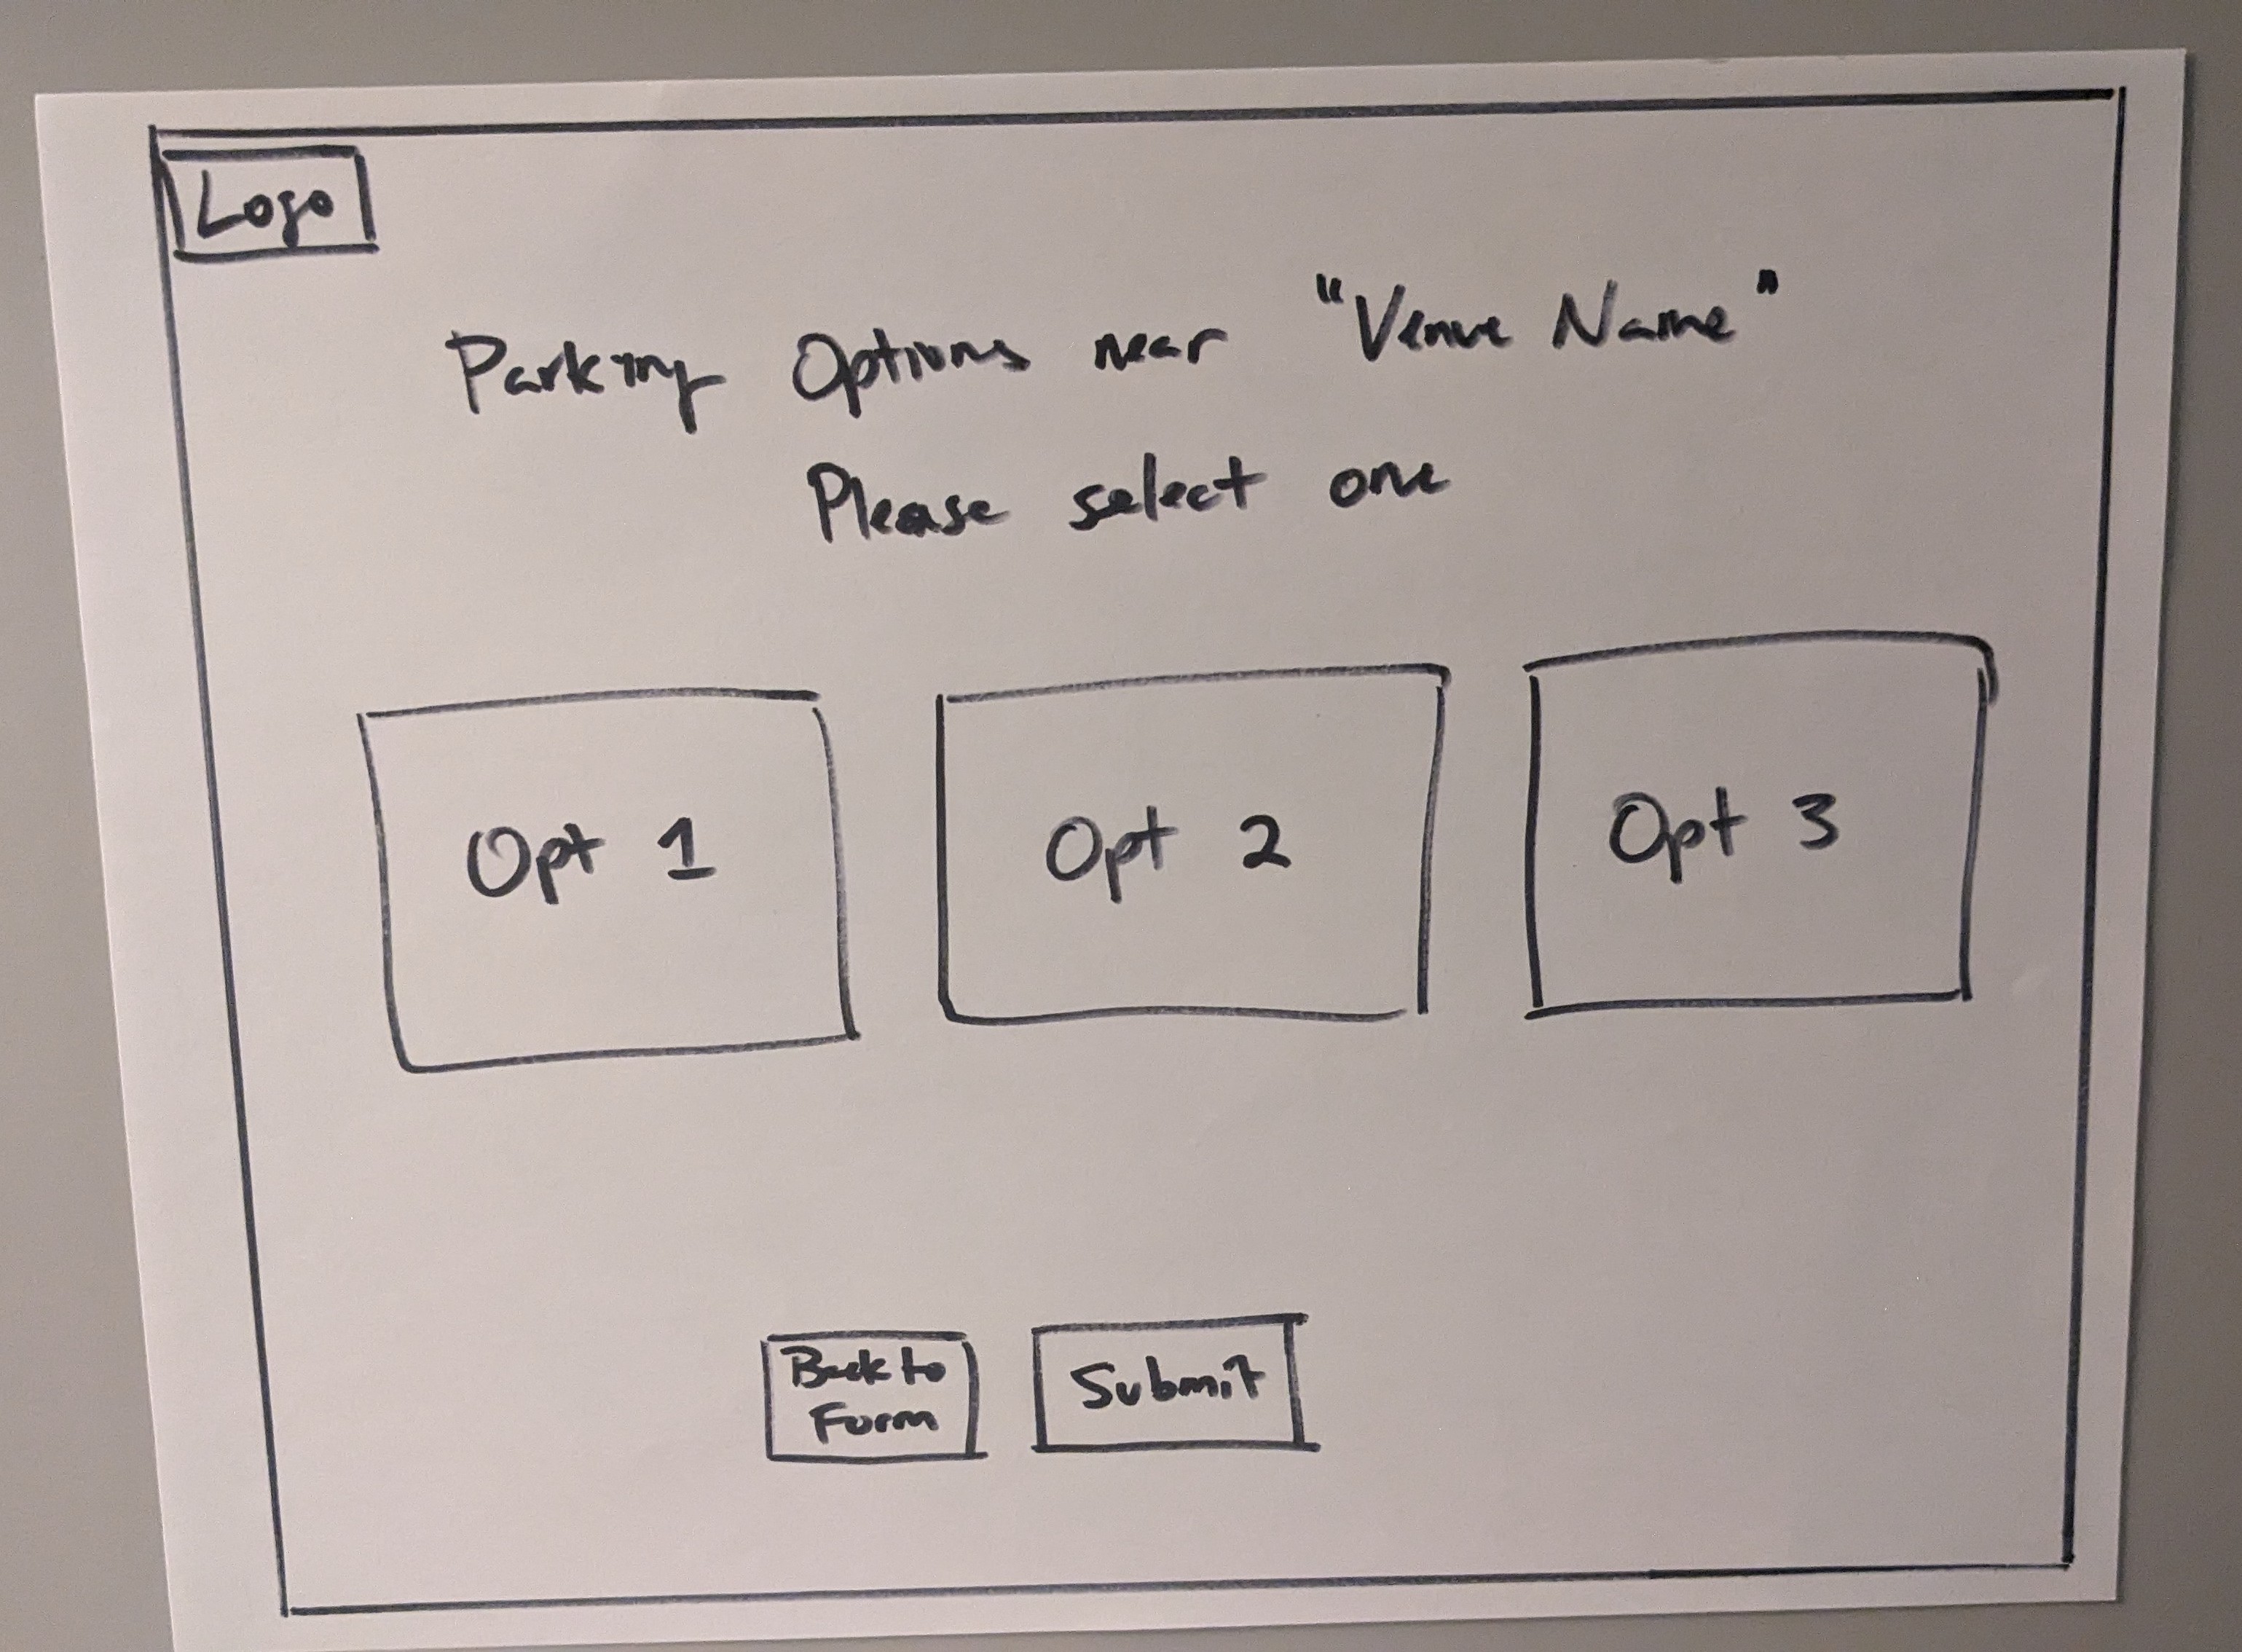 Logo
Parking Options near "Venue Name"
Please select one
Opt 1
Opt 2
Opt 3
Back to
Form
Submit